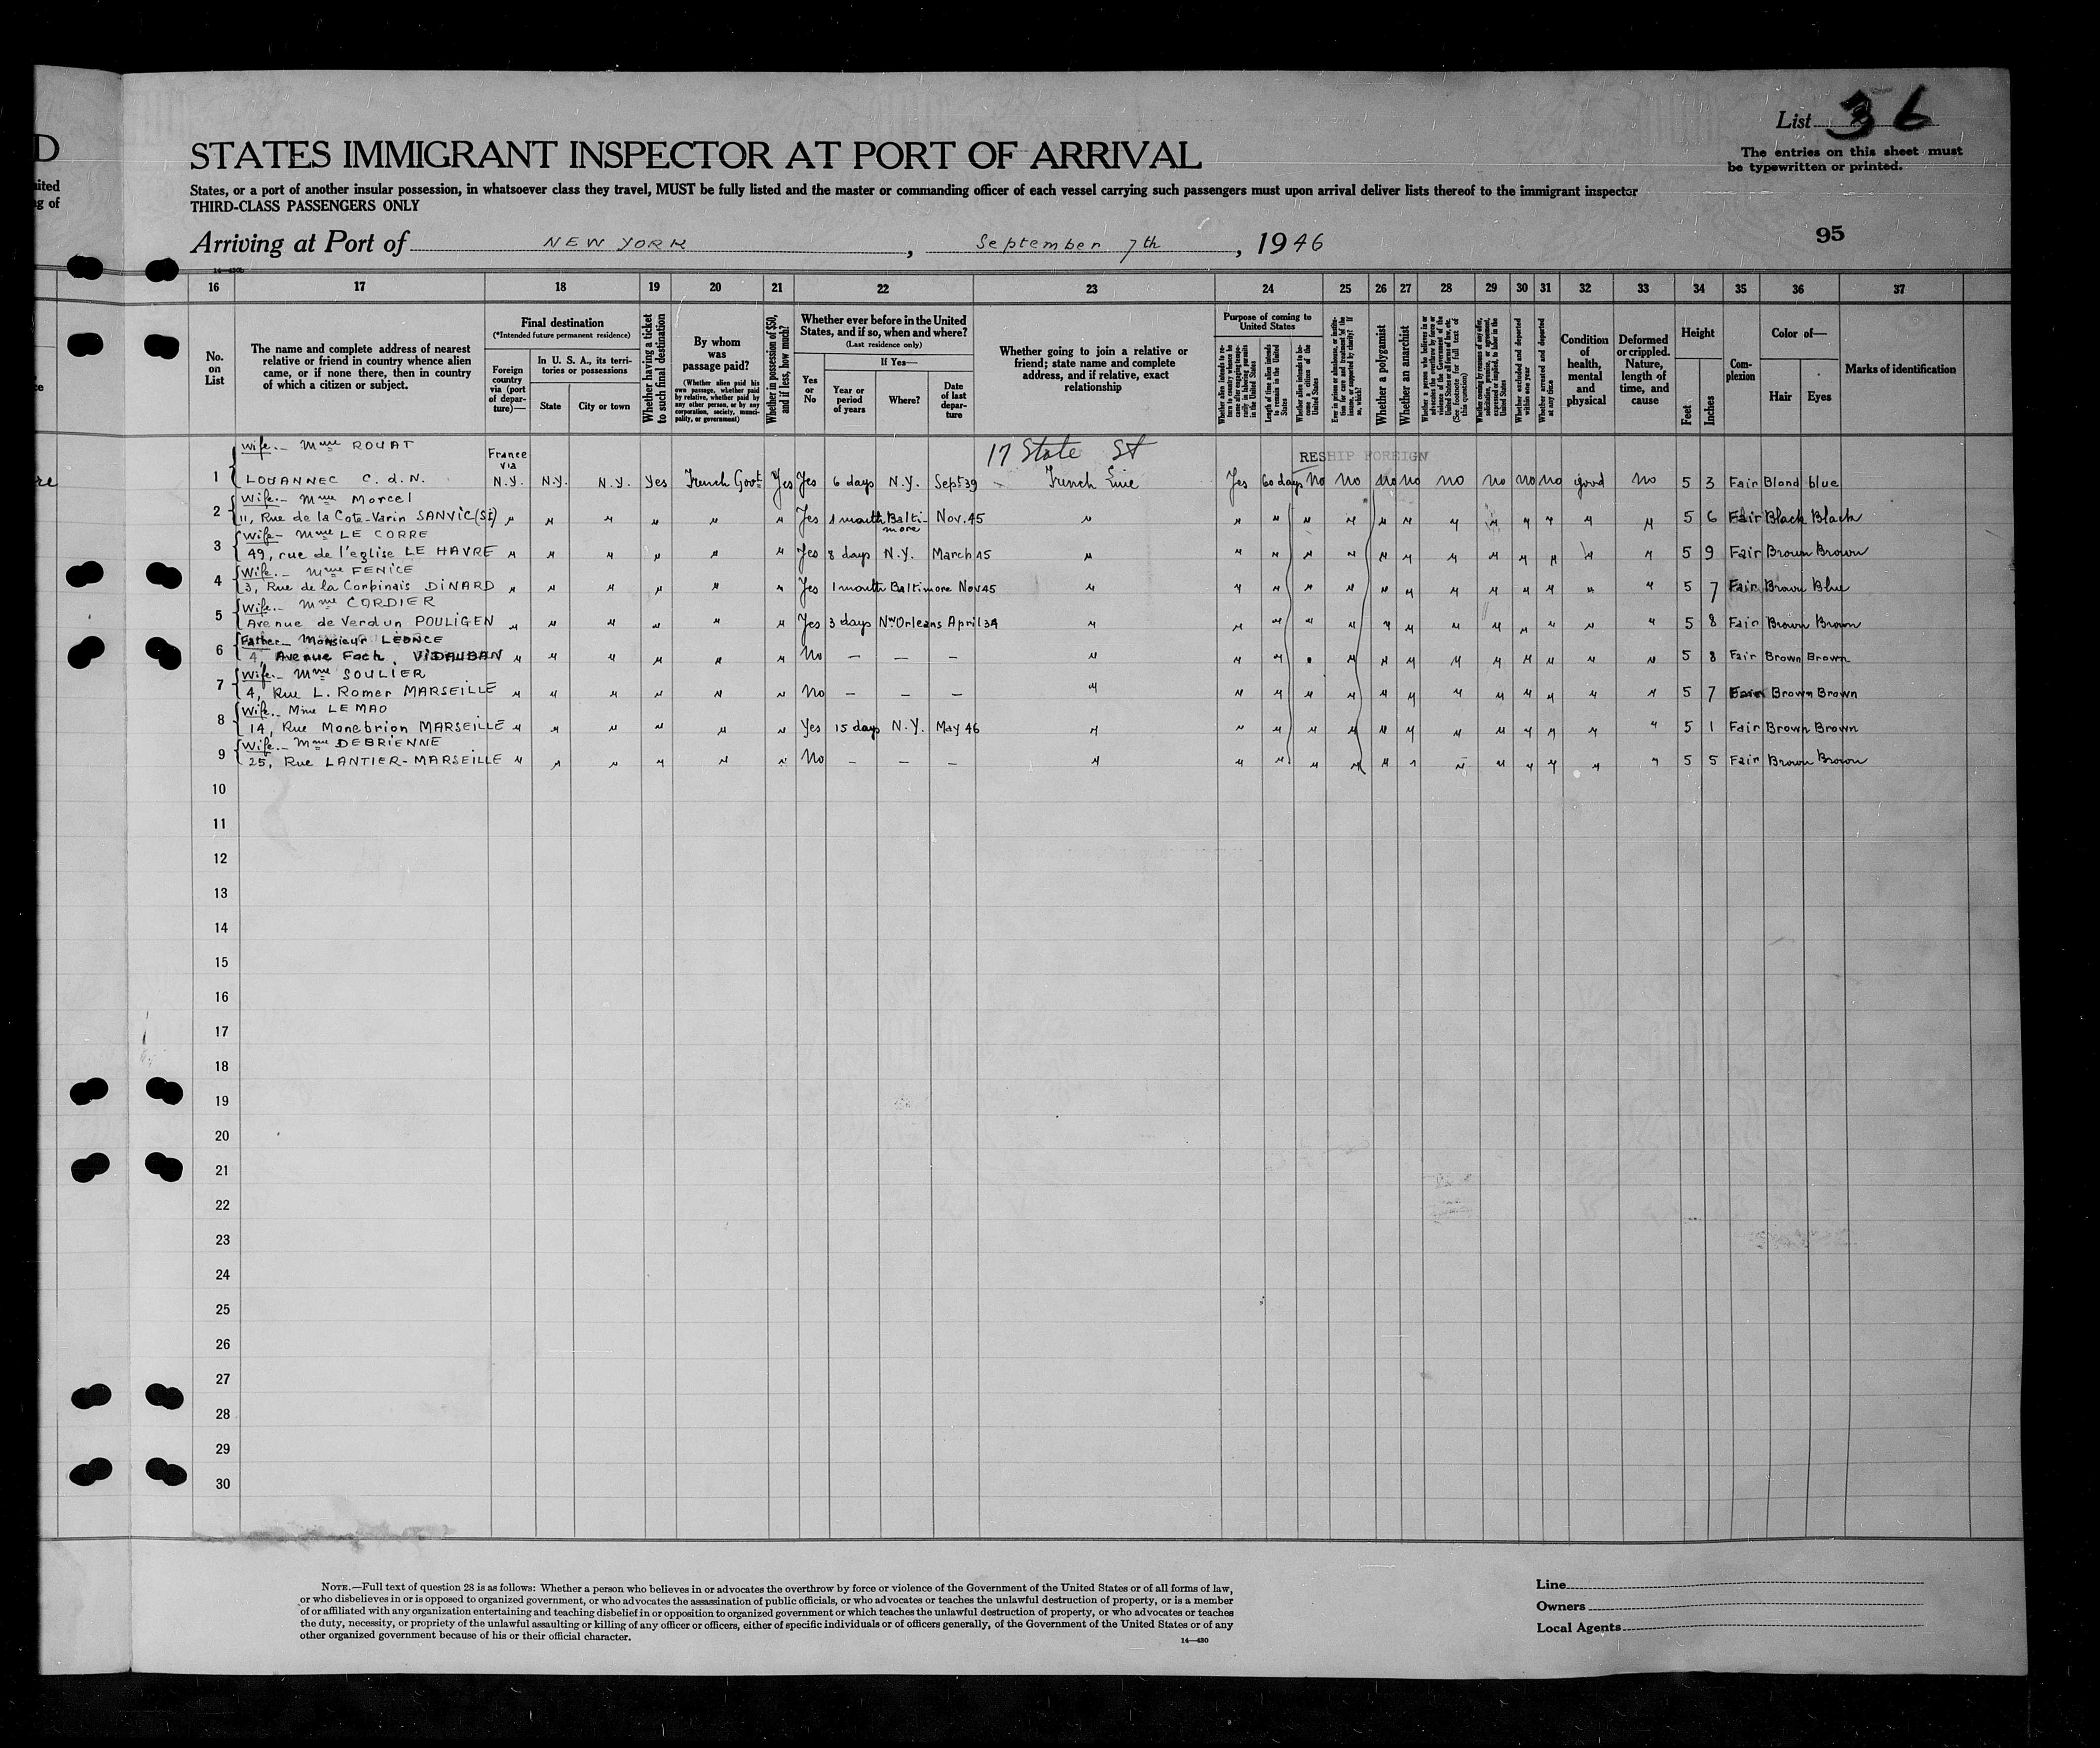 D
ited
g of
re
List 36
The entries on this sheet must
be typewritten or printed.
STATES IMMIGRANT INSPECTOR AT PORT OF ARRIVAL
States, or a port of another insular possession, in whatsoever class they travel, MUST be fully listed and the master or commanding officer of each vessel carrying such passengers must upon arrival deliver lists thereof to the immigrant inspector
THIRD-CLASS PASSENGERS ONLY
Arriving at Port of NEW YORK, September 7th, 1946
95
16 17 18 19 20 21 22 23 24 25 26 27 28 29 30 31 32 33 34 35 36 37
No. on List
The name and complete address of nearest relative or friend in country whence alien came, or if none there, then in country of which a citizen or subject.
Final destination
(*Intended future permanent residence)
Foreign country via (port of departure)—
In U. S. A., its territories or possessions
State
City or town
Whether having a ticket to such final destination
By whom was passage paid?
(Whether alien paid his own passage, whether paid by relative, whether paid by any other person, or by any corporation, society, municipality, or government)
Whether in possession of $50, and if less, how much?
Whether ever before in the United States, and if so, when and where?
(Last residence only)
Yes or No
If Yes—
Year or period of years
Where?
Date of last departure
Whether going to join a relative or friend; state name and complete address, and if relative, exact relationship
Purpose of coming to United States
Length of time alien intends to remain in the United States
Whether alien intends to become a citizen of the United States
Whether a polygamist
Whether an anarchist
Whether excluded and deported within one year
Whether arrested and deported at any time
Condition of health, mental and physical
Deformed or crippled. Nature, length of time, and cause
Height
Feet
Inches
Complexion
Color of—
Hair
Eyes
Marks of identification
17 State St
RESHIP FOREIGN
wife.- Mme ROUAT
France via
1 LOUANNEC C. d. N. N.Y. N.Y. N.Y. Yes French Govt Yes Yes 6 days N.Y. Sept 39 French Line Yes 60 days No No No No No No No No good No 5 3 Fair Blond blue
Wife.- Mme Morcel
2 11, Rue de la Cote-Varin SANVIC(SI) " " " " " " Yes 1 month Baltimore Nov. 45 " " " " " " " " " " " " " 5 6 Fair Black Black
Wife- Mme LE CORRE
3 49, rue de l'eglise LE HAVRE " " " " " " Yes 8 days N.Y. March 45 " " " " " " " " " " " " " 5 9 Fair Brown Brown
Wife.- Mme FENICE
4 3, Rue de la Corbinais DINARD " " " " " " Yes 1 month Baltimore Nov 45 " " " " " " " " " " " " " 5 7 Fair Brown Blue
Wife.- Mme CORDIER
5 Avenue de Verdun POULIGEN " " " " " " Yes 3 days Nw Orleans April 34 " " " " " " " " " " " " " 5 8 Fair Brown Brown
Father- Monsieur LEONCE
6 4, Avenue Foch. VIDAUBAN " " " " " " No — — — " " " " " " " " " " " " " 5 8 Fair Brown Brown
Wife.- Mme SOULIER
7 4, Rue L. Romer MARSEILLE " " " " " " No — — — " " " " " " " " " " " " " 5 7 Fair Brown Brown
Wife.- Mme LE MAO
8 14, Rue Monebrion MARSEILLE " " " " " " Yes 15 days N.Y. May 46 " " " " " " " " " " " " " 5 1 Fair Brown Brown
Wife.- Mme DEBRIENNE
9 25, Rue LANTIER-MARSEILLE " " " " " " No — — — " " " " " " " " " " " " " 5 5 Fair Brown Brown
10
11
12
13
14
15
16
17
18
19
20
21
22
23
24
25
26
27
28
29
30
NOTE.—Full text of question 28 is as follows: Whether a person who believes in or advocates the overthrow by force or violence of the Government of the United States or of all forms of law,
or who disbelieves in or is opposed to organized government, or who advocates the assassination of public officials, or who advocates or teaches the unlawful destruction of property, or is a member
of or affiliated with any organization entertaining and teaching disbelief in or opposition to organized government or which teaches the unlawful destruction of property, or who advocates or teaches
the duty, necessity, or propriety of the unlawful assaulting or killing of any officer or officers, either of specific individuals or of officers generally, of the Government of the United States or of any
other organized government because of his or their official character.
14—430
Line
Owners
Local Agents